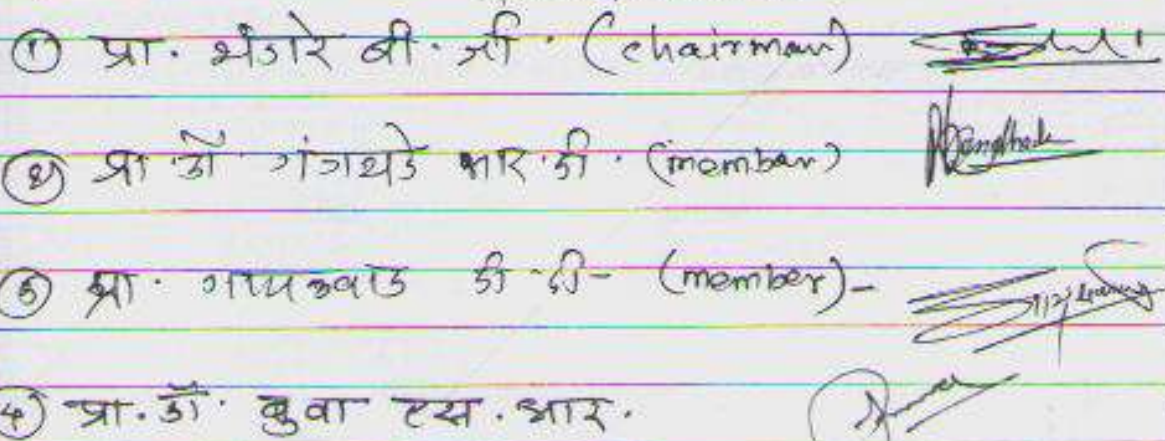 ① प्रा. भंगारे बी. जी. (chairman)
② प्रा. डॉ गंगथडे आर. डी. (member)
③ प्रा. गायकवाड डी. डी - (member) -
④ प्रा. डॉ. बुवा एस. आर.